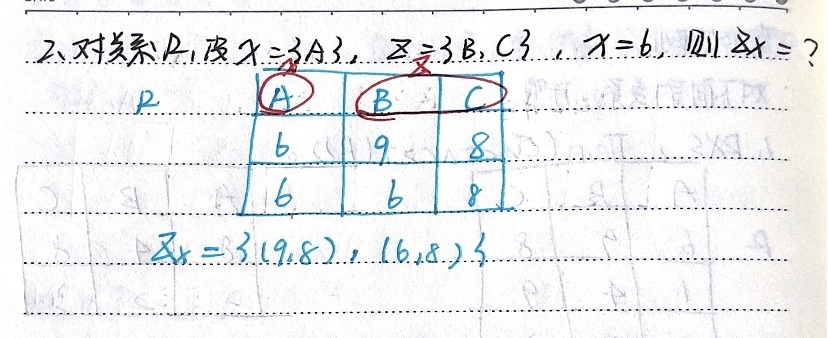 2、对关系R,设X={A}, Z={B,C}, x=6, 则Zx=?
X Z
R A B C
6 9 8
6 6 8
Zx={(9,8),(6,8)}